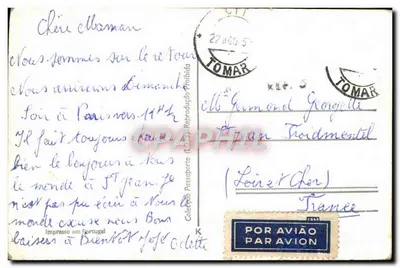 Chère Maman
Nous sommes sur le retour
Nous arriverons Dimanche
Soir à Paris vers 11H
Il fait toujours
bien le bonjour à tous
le monde à St Jean Je
n'est pas pu écrir à tous le
monde excuse nous Bons
baisers à Bientôt José Colette
Impresso em Portugal
Colecção Passaporte Reprodução Proibida
K
TOMAR
TOMAR
Germond Georgette
St Jean Froidmentel
(Loir et Cher)
France
POR AVIÃO
PAR AVION